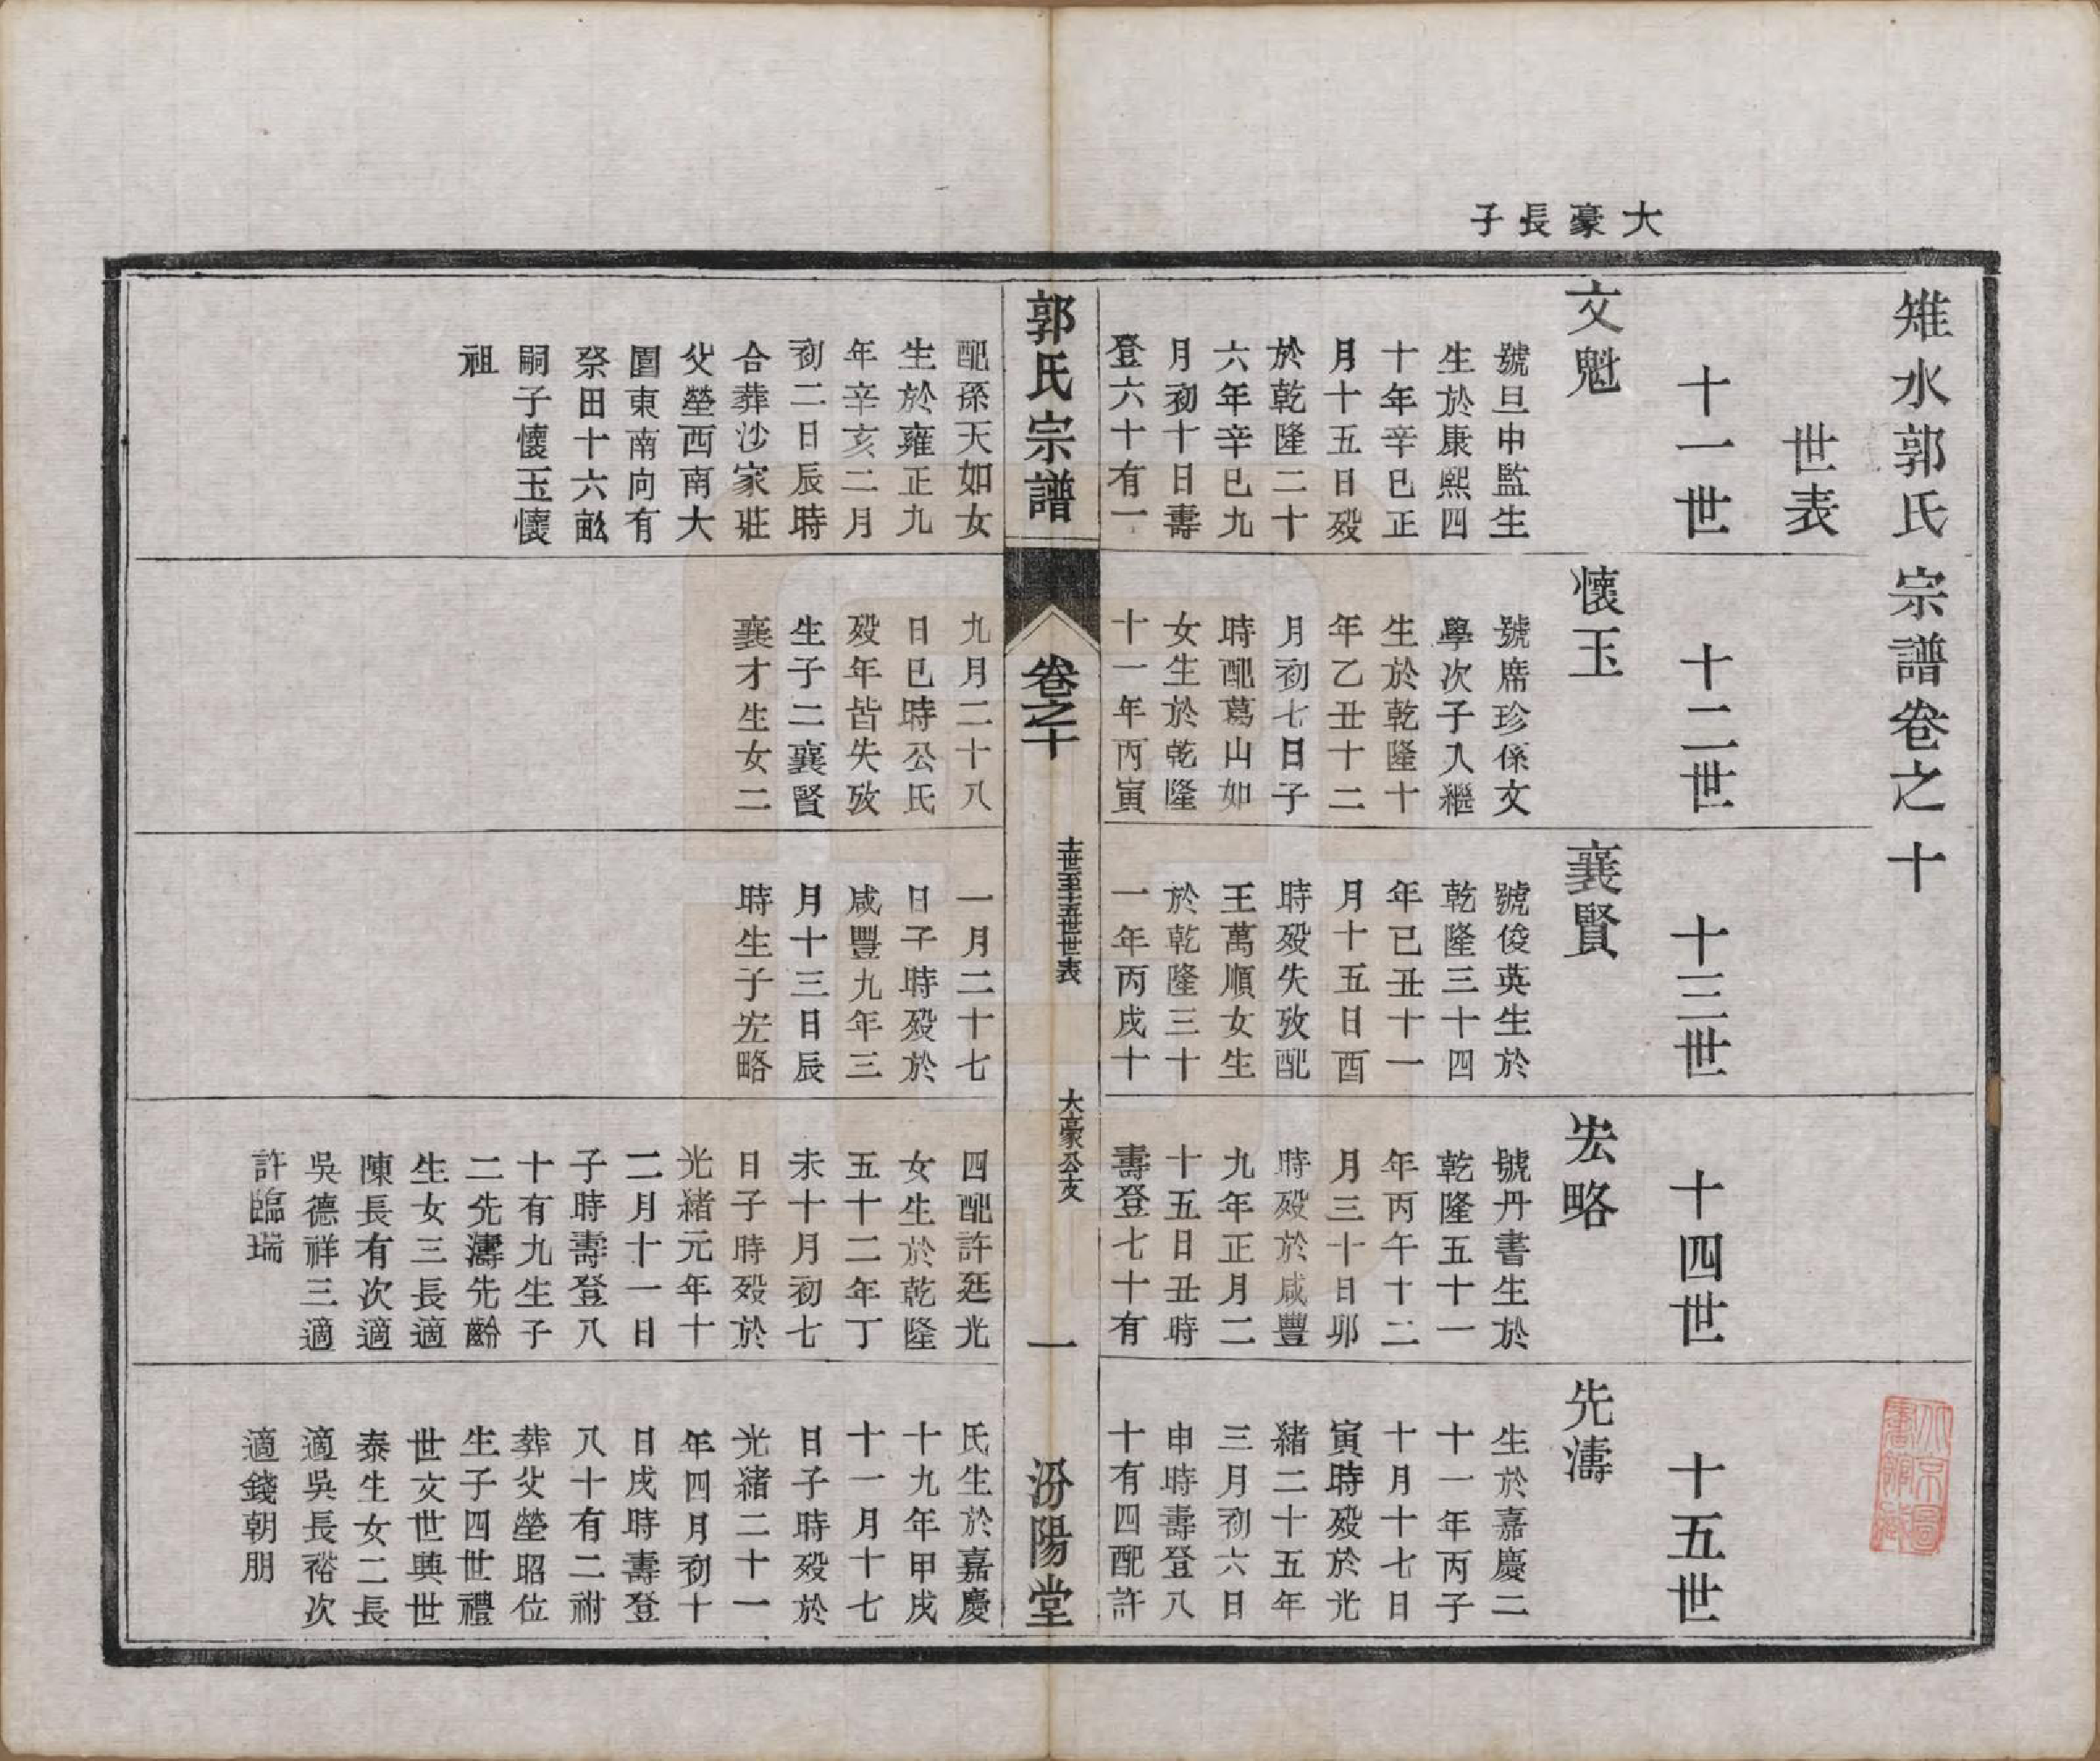 大豪長子
雉水郭氏宗譜卷之十
世表
十一世
文魁
號旦申監生
生於康熙四
十年辛巳正
月十五日歿
於乾隆二十
六年辛巳九
月初十日壽
登六十有一
配孫天如女
生於雍正九
年辛亥二月
初二日辰時
合葬沙家莊
父塋西南大
圍東南向有
祭田十六畝
嗣子懷玉懷
祖
十二世
懷玉
號席珍係文
學次子入繼
生於乾隆十
年乙丑十二
月初七日子
時配葛山如
女生於乾隆
十一年丙寅
九月二十八
日巳時公氏
歿年皆失攷
生子二襄賢
襄才生女二
十三世
襄賢
號俊英生於
乾隆三十四
年己丑十一
月十五日酉
時歿失攷配
王萬順女生
於乾隆三十
一年丙戌十
一月二十七
日子時歿於
咸豐九年三
月十三日辰
時生子宏略
十四世
宏略
號丹書生於
乾隆五十一
年丙午十二
月三十日卯
時歿於咸豐
九年正月二
十五日丑時
壽登七十有
四配許廷光
女生於乾隆
五十二年丁
未十月初七
日子時歿於
光緒元年十
二月十一日
子時壽登八
十有九生子
二先濤先齡
生女三長適
陳長有次適
吳德祥三適
許臨瑞
十五世
先濤
生於嘉慶二
十一年丙子
十月十七日
寅時歿於光
緒二十五年
三月初六日
申時壽登八
十有四配許
氏生於嘉慶
十九年甲戌
十一月十七
日子時歿於
光緒二十一
年四月初十
日戌時壽登
八十有二祔
葬父塋昭位
生子四世禮
世文世興世
泰生女二長
適吳長裕次
適錢朝朋
郭氏宗譜
卷之十
十一世至十五世世表
大豪公支
一
汾陽堂